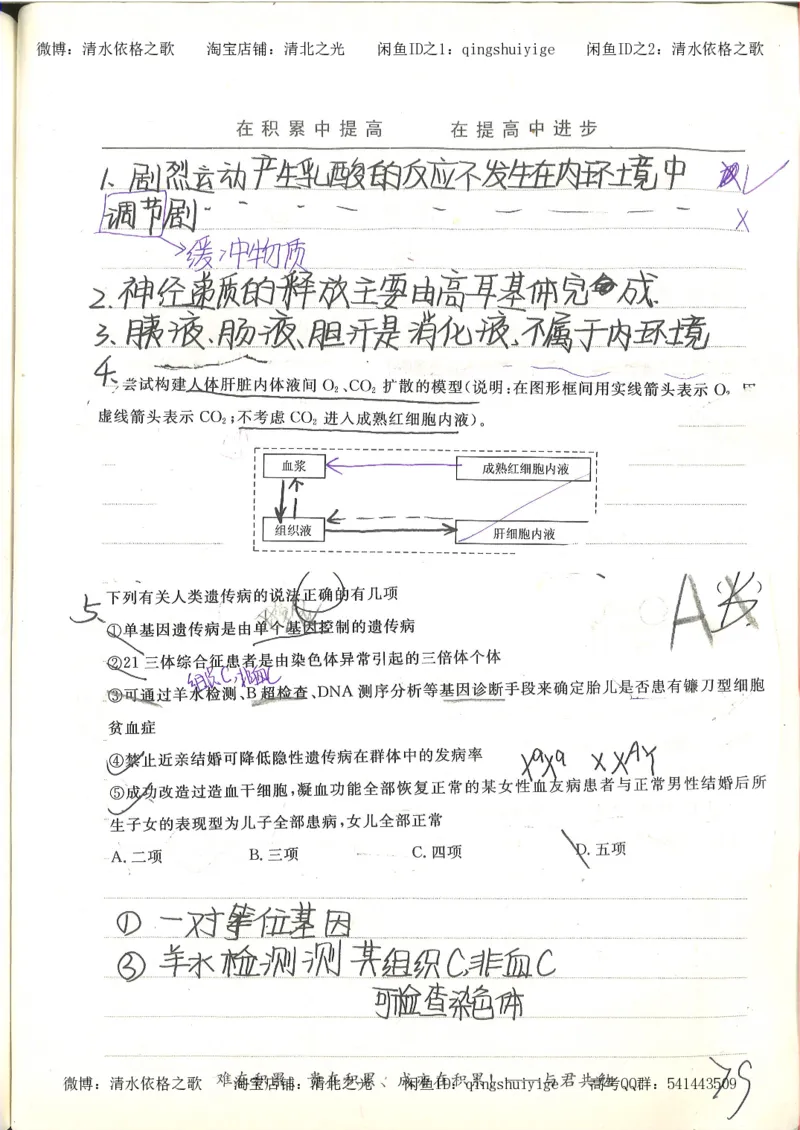 微博：清水依格之歌 淘宝店铺：清北之光 闲鱼ID之1：qingshuiyige 闲鱼ID之2：清水依格之歌
在积累中提高 在提高中进步
1、剧烈运动产生乳酸的反应不发生在内环境中 √
调节剧 ×
缓冲物质
2、神经递质的释放主要由高耳基体完成.
3、胰液、肠液、胆汁是消化液、不属于内环境
4、尝试构建人体肝脏内体液间 O₂、CO₂ 扩散的模型(说明:在图形框间用实线箭头表示 O₂
虚线箭头表示 CO₂;不考虑 CO₂ 进入成熟红细胞内液)。
血浆 成熟红细胞内液
组织液 肝细胞内液
5、下列有关人类遗传病的说法正确的有几项 ( )
A
①单基因遗传病是由单个基因控制的遗传病
②21 三体综合征患者是由染色体异常引起的三倍体个体
组织C,非血C
③可通过羊水检测、B 超检查、DNA 测序分析等基因诊断手段来确定胎儿是否患有镰刀型细胞
贫血症
④禁止近亲结婚可降低隐性遗传病在群体中的发病率
XᵃXᵃ × XᴬY
⑤成功改造过造血干细胞,凝血功能全部恢复正常的某女性血友病患者与正常男性结婚后所
生子女的表现型为儿子全部患病,女儿全部正常
A. 二项 B. 三项 C. 四项 D. 五项
① 一对等位基因
③ 羊水检测测其组织C,非血C
可检查染色体
微博：清水依格之歌 淘宝店铺：清北之光 闲鱼ID：qingshuiyige 高考QQ群：541443509